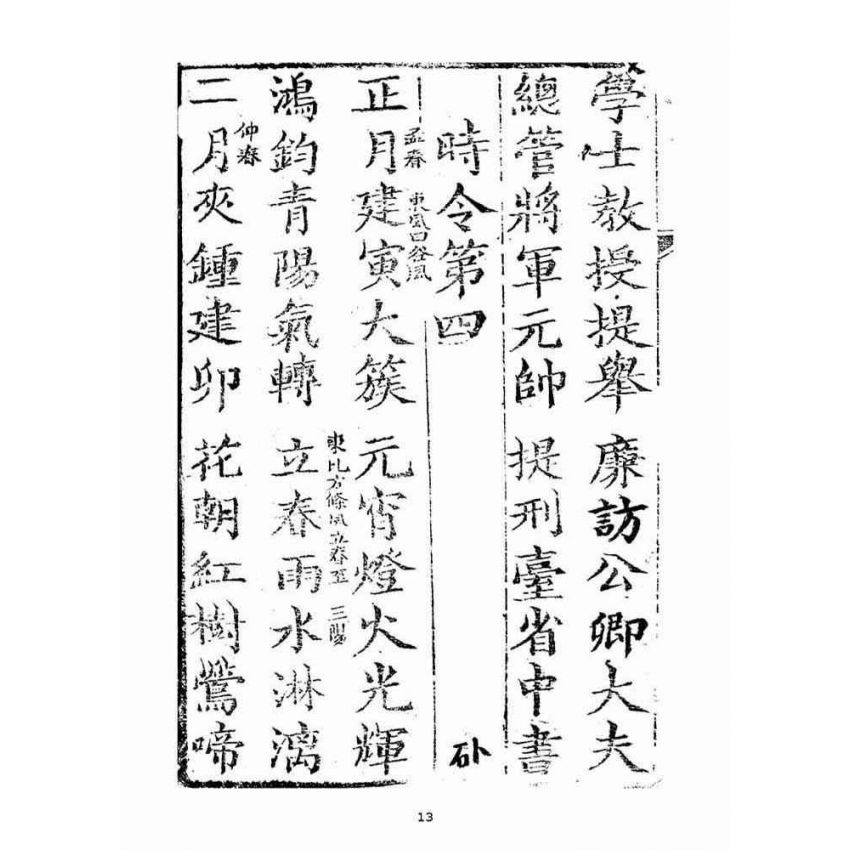 學士教授提舉 廉訪公卿大夫
總管將軍元帥 提刑臺省中書
時令第四 卟
孟春 東風曰谷風
正月建寅大簇 元宵燈火光輝
東北方條風立春至 三陽
鴻鈞青陽氣轉 立春雨水淋漓
仲春
二月夾鍾建卯 花朝紅樹鶯啼
13